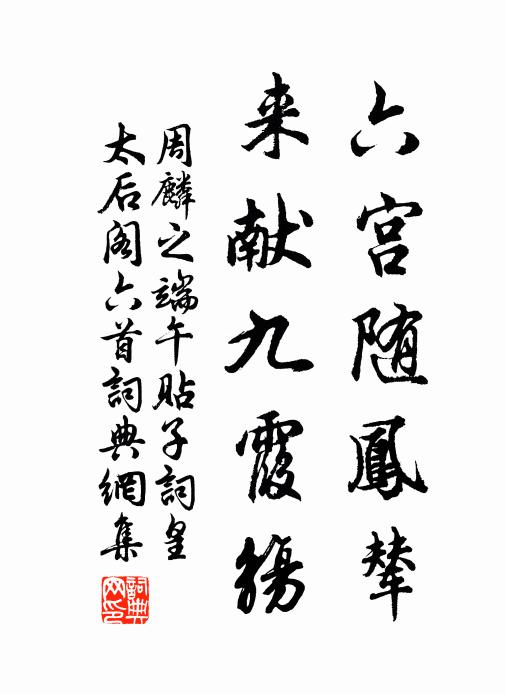 六宫随鳳輦
来献九霞觴
周麟之端午貼子詞皇
太后阁六首詞典網集
詞典网印